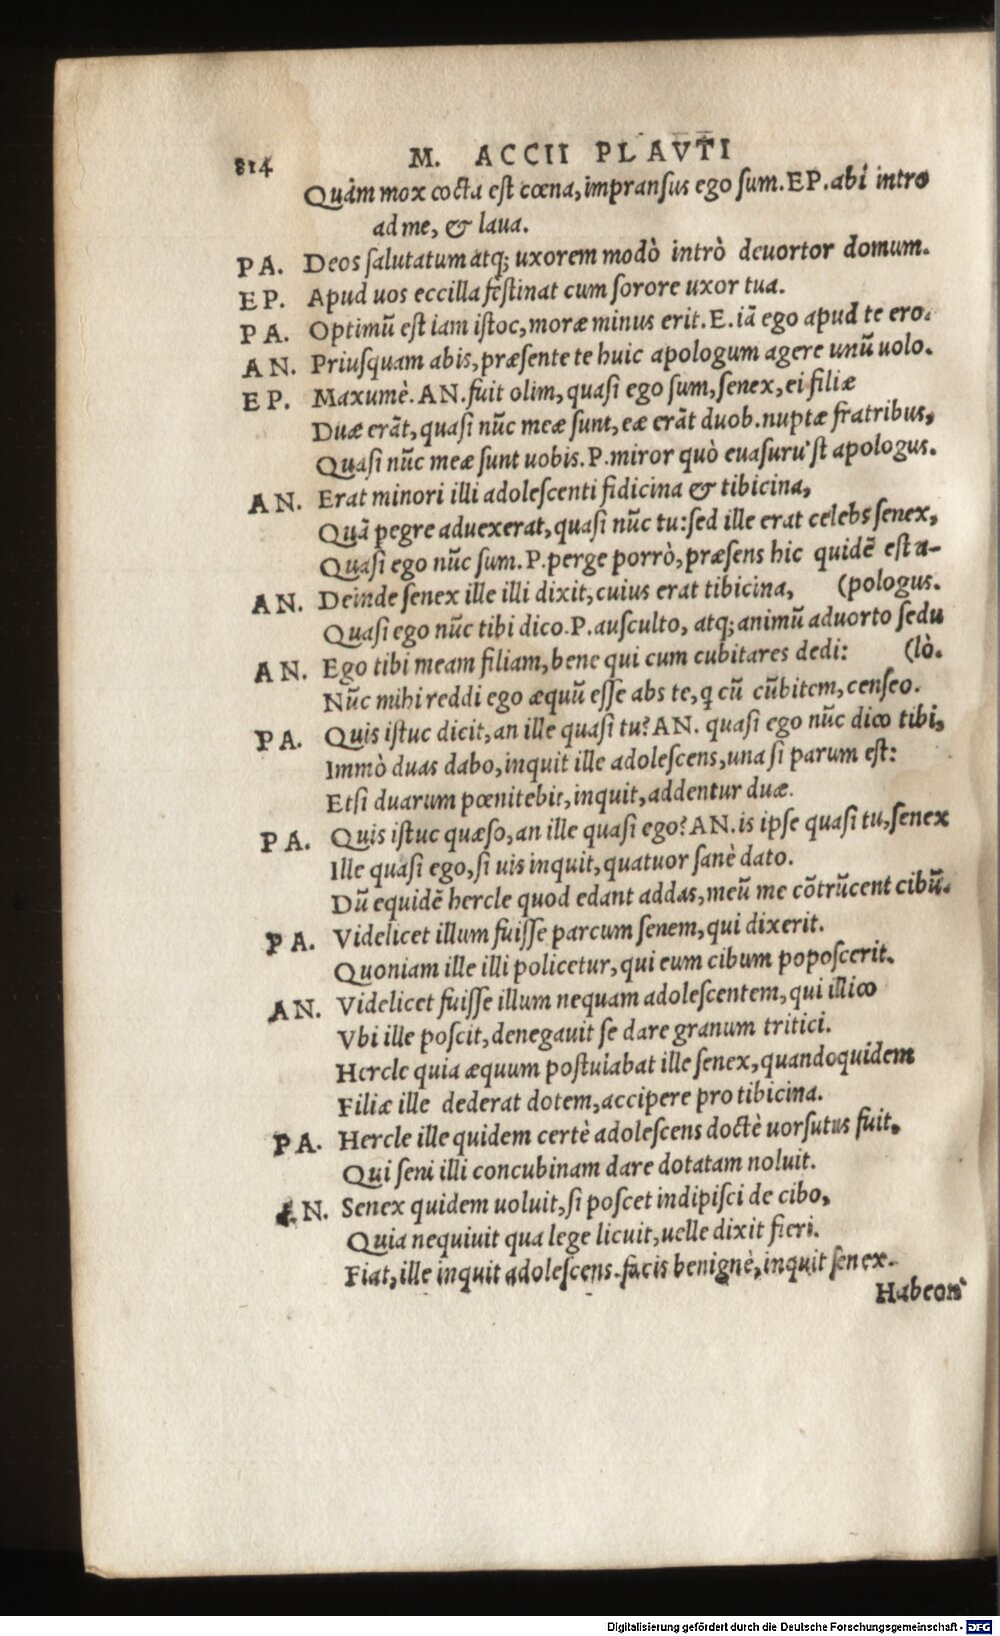 814 M. ACCII PLAVTI
Quàm mox cocta est cœna, impransus ego sum. EP. abi intro
ad me, & laua.
PA. Deos salutatum atq; uxorem modò intrò deuortor domum.
EP. Apud uos eccilla festinat cum sorore uxor tua.
PA. Optimũ est iam istoc, moræ minus erit. E. iã ego apud te ero.
AN. Priusquam abis, præsente te huic apologum agere unũ uolo.
EP. Maxumè. AN. fuit olim, quasi ego sum, senex, ei filiæ
Duæ erãt, quasi nũc meæ sunt, eæ erãt duob. nuptæ fratribus,
Quasi nũc meæ sunt uobis. P. miror quò euasuru'st apologus.
AN. Erat minori illi adolescenti fidicina & tibicina,
Quã pegre aduexerat, quasi nũc tu: sed ille erat celebs senex,
Quasi ego nũc sum. P. perge porrò, præsens hic quidẽ est a-
AN. Deinde senex ille illi dixit, cuius erat tibicina, (pologus.
Quasi ego nũc tibi dico. P. ausculto, atq; animũ aduorto sedu
AN. Ego tibi meam filiam, bene qui cum cubitares dedi: (lò.
Nũc mihi reddi ego æquũ esse abs te, q̃ cũ cũbitem, censeo.
PA. Quis istuc dicit, an ille quasi tu? AN. quasi ego nũc dico tibi,
Immò duas dabo, inquit ille adolescens, una si parum est:
Etsi duarum pœnitebit, inquit, addentur duæ.
PA. Quis istuc quæso, an ille quasi ego? AN. is ipse quasi tu, senex
Ille quasi ego, si uis inquit, quatuor sanè dato.
Dũ equidẽ hercle quod edant addas, meũ me cõtrũcent cibũ.
PA. Videlicet illum fuisse parcum senem, qui dixerit.
Quoniam ille illi policetur, qui eum cibum poposcerit.
AN. Videlicet fuisse illum nequam adolescentem, qui illico
Vbi ille poscit, denegauit se dare granum tritici.
Hercle quia æquum postulabat ille senex, quandoquidem
Filiæ ille dederat dotem, accipere pro tibicina.
PA. Hercle ille quidem certè adolescens doctè uorsutus fuit,
Qui seni illi concubinam dare dotatam noluit.
AN. Senex quidem uoluit, si poscet indipisci de cibo,
Quia nequiuit qua lege licuit, uelle dixit fieri.
Fiat, ille inquit adolescens. facis benignè, inquit senex.
Habeon'
Digitalisierung gefördert durch die Deutsche Forschungsgemeinschaft - DFG